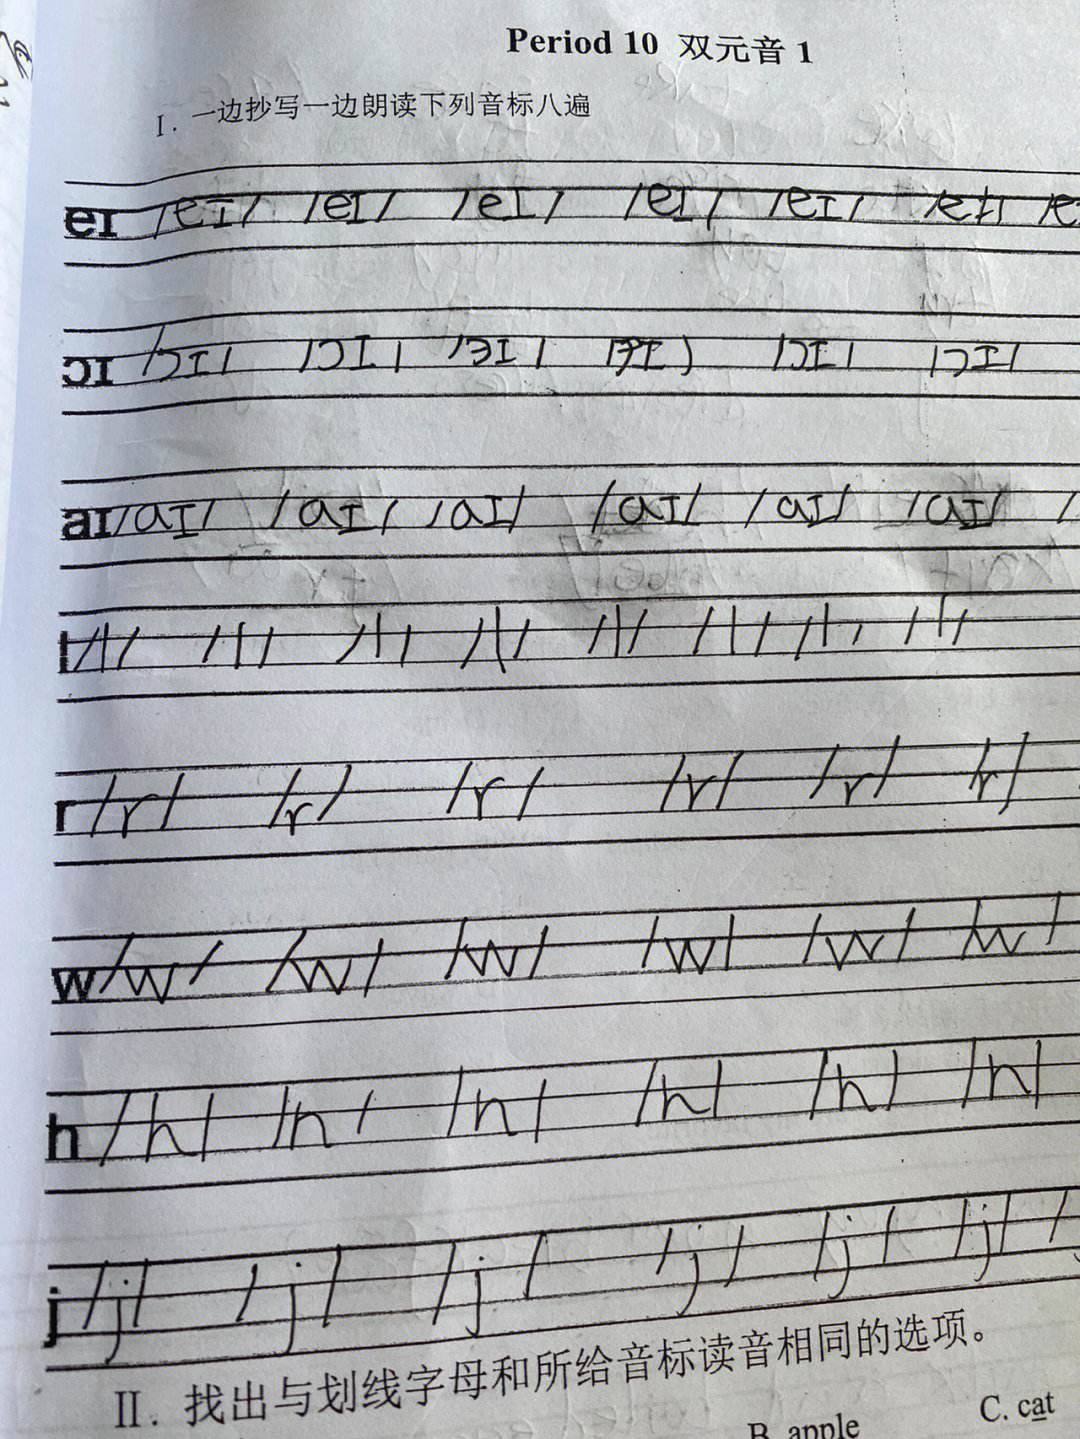 Period 10 双元音 1
I. 一边抄写一边朗读下列音标八遍
eɪ /eɪ/ /eɪ/ /eɪ/ /eɪ/ /eɪ/ /eɪ/ /e
ɔɪ /ɔɪ/ /ɔɪ/ /ɔɪ/ /ɔɪ/ /ɔɪ/ /ɔɪ/
aɪ /aɪ/ /aɪ/ /aɪ/ /aɪ/ /aɪ/ /aɪ/ /
l /l/ /l/ /l/ /l/ /l/ /l/ /l/ /l/
r /r/ /r/ /r/ /r/ /r/ /r/
w /w/ /w/ /w/ /w/ /w/ /w/
h /h/ /h/ /h/ /h/ /h/ /h/
j /j/ /j/ /j/ /j/ /j/ /j/ /
II. 找出与划线字母和所给音标读音相同的选项。
B. apple C. cat